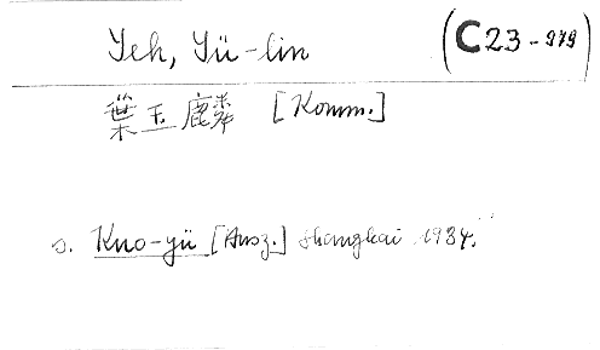 Yeh, Yü-lin (C23-979)
葉玉麟 [Komm.]
s. Kuo-yü [Ausz.] Shanghai 1934.